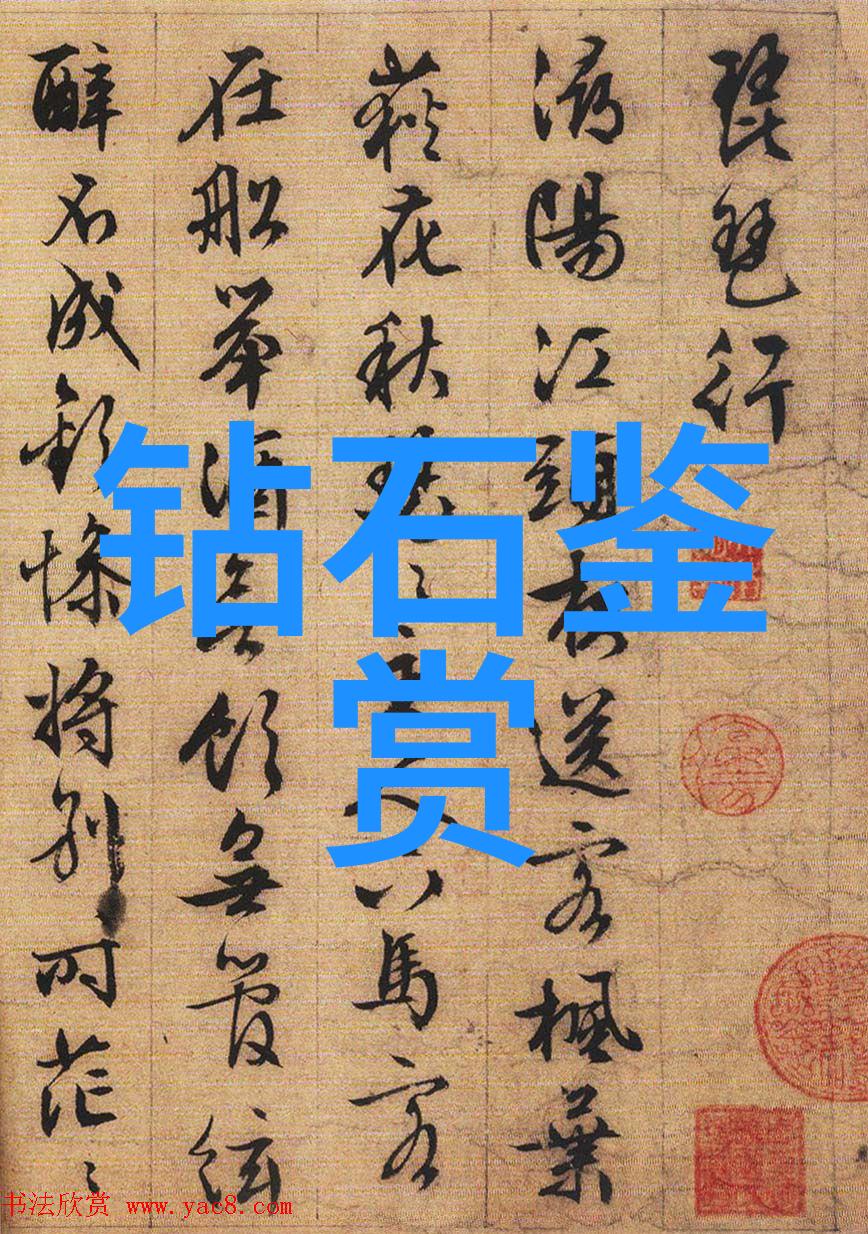 琵琶行
潯陽江頭夜送客楓葉
荻花秋瑟〻主人下馬客
在船舉酒欲飲無管絃
醉不成歡慘將別時茫〻
钻石鉴
赏
书法欣赏 www.yac8.com